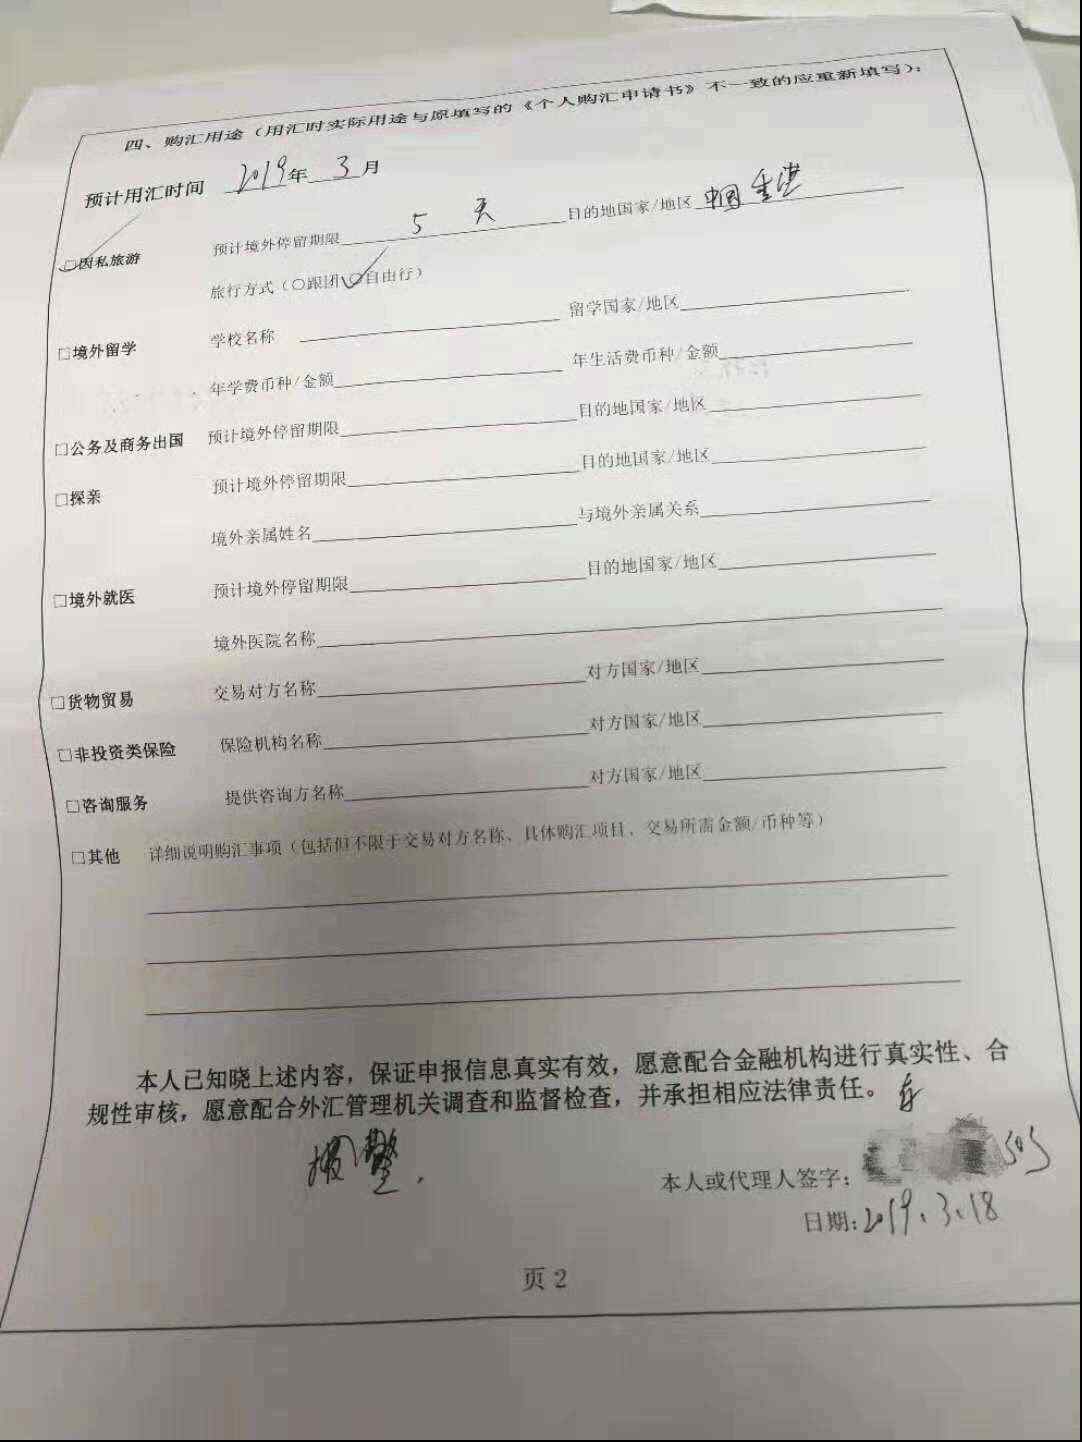 四、购汇用途（用汇时实际用途与原填写的《个人购汇申请书》不一致的应重新填写）：
预计用汇时间 2019年 3月
□因私旅游 预计境外停留期限 5 天 目的地国家/地区 中国香港
旅行方式（○跟团 ○自由行）
□境外留学 学校名称 留学国家/地区
年学费币种/金额 年生活费币种/金额
□公务及商务出国 预计境外停留期限 目的地国家/地区
□探亲 预计境外停留期限 目的地国家/地区
境外亲属姓名 与境外亲属关系
□境外就医 预计境外停留期限 目的地国家/地区
境外医院名称
□货物贸易 交易对方名称 对方国家/地区
□非投资类保险 保险机构名称 对方国家/地区
□咨询服务 提供咨询方名称 对方国家/地区
□其他 详细说明购汇事项（包括但不限于交易对方名称、具体购汇项目、交易所需金额/币种等）
本人已知晓上述内容，保证申报信息真实有效，愿意配合金融机构进行真实性、合
规性审核，愿意配合外汇管理机关调查和监督检查，并承担相应法律责任。
报警.
本人或代理人签字：
日期：2019.3.18
页 2